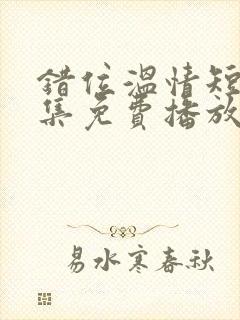 错位温情短
集免費播放
易水寒春秋